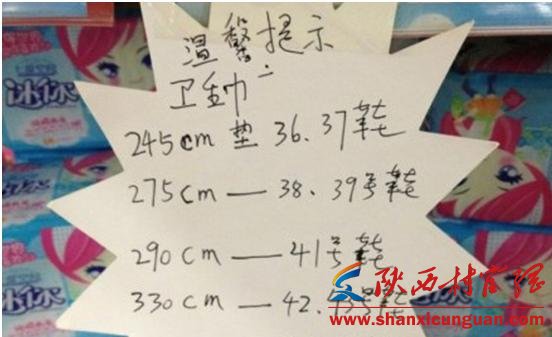 温馨提示
卫生巾:
245cm 垫 36.37鞋
275cm — 38.39号鞋
290cm — 41号鞋
330cm — 42.43号鞋
陕西村官网
www.shanxicunguan.com